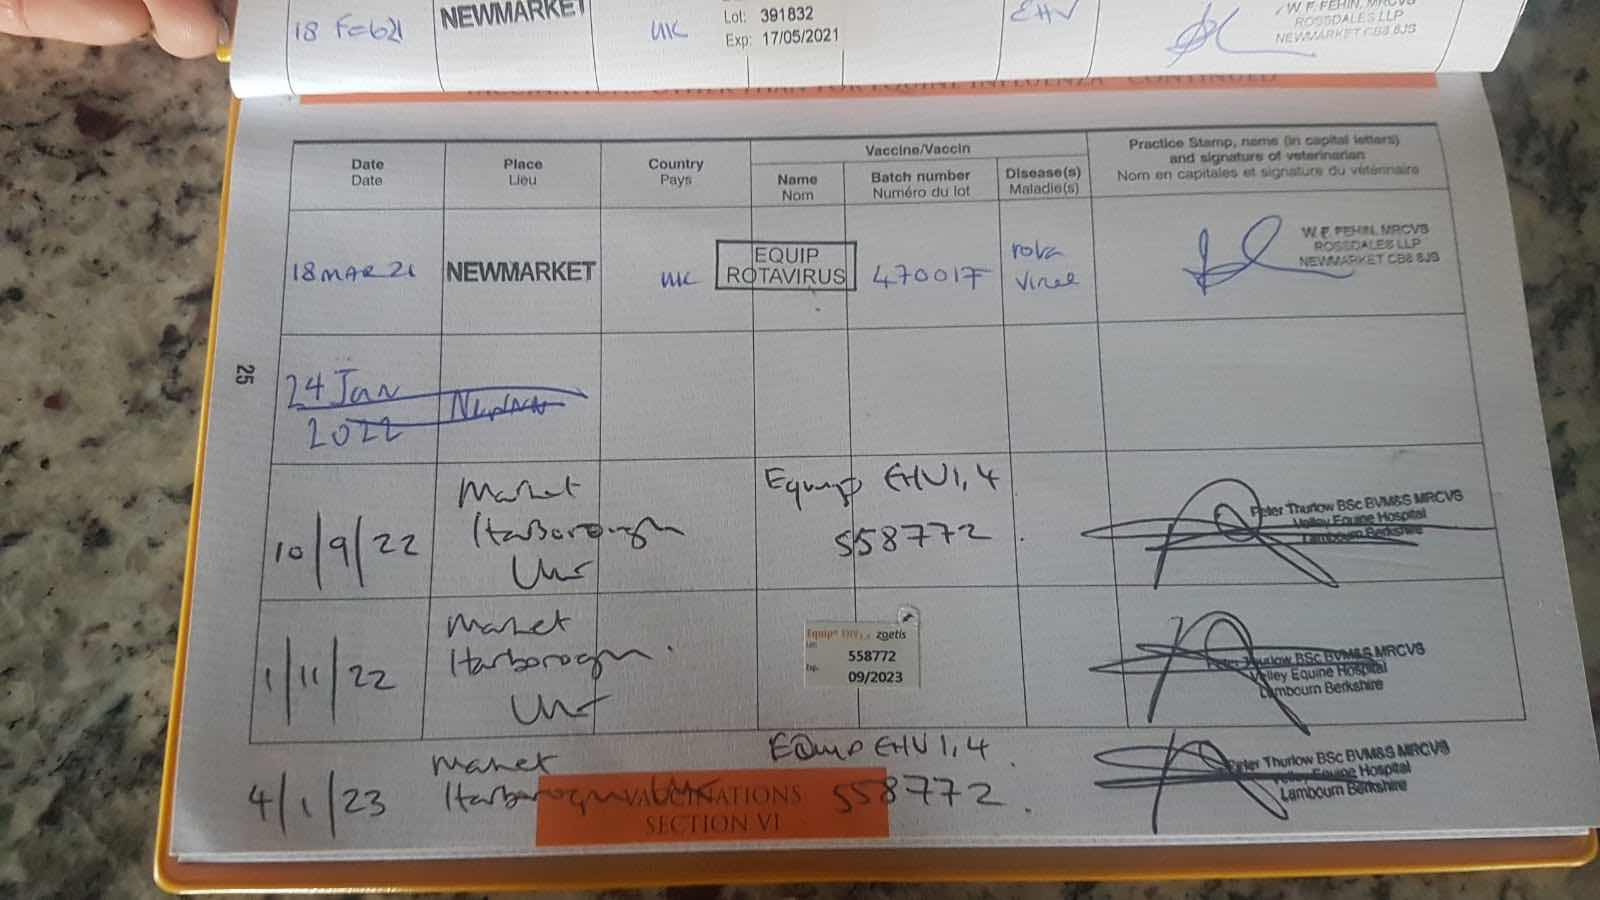 18 Feb 21 NEWMARKET UK Lot: 391832 EHV W. F. FEHIN, MRCVS
Exp: 17/05/2021 ROSSDALES LLP
NEWMARKET CB8 8JS
OTHER THAN FOR EQUINE INFLUENZA CONTINUED
Date Place Country Vaccine/Vaccin Practice Stamp, name (in capital letters)
Date Lieu Pays and signature of veterinarian
Name Batch number Disease(s) Nom en capitales et signature du vétérinaire
Nom Numéro du lot Maladie(s)
18 MAR 21 NEWMARKET UK EQUIP ROTAVIRUS 470017F rota W. F. FEHIN, MRCVS
ROSSDALES LLP
NEWMARKET CB8 8JS
25
24 Jan
2022
10/9/22 Market Equip EHV1,4 Peter Thurlow BSc BVM&S MRCVS
Harborough 558772 Valley Equine Hospital
UK Lambourn Berkshire
1/11/22 Market Equip EHV1,4 zoetis Peter Thurlow BSc BVM&S MRCVS
Harborough 558772 Valley Equine Hospital
UK 09/2023 Lambourn Berkshire
4/1/23 Market Equip EHV1,4 Peter Thurlow BSc BVM&S MRCVS
Harborough UK 558772 Valley Equine Hospital
Lambourn Berkshire
VACCINATIONS
SECTION VI